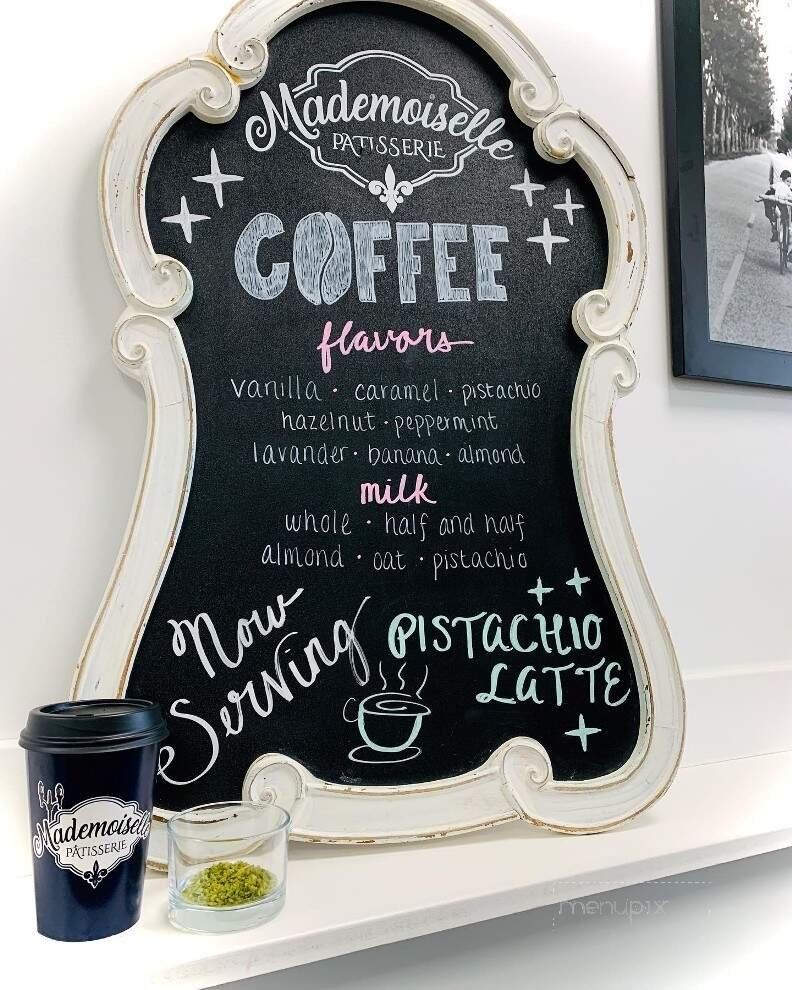 Mademoiselle
PATISSERIE
COFFEE
flavors
vanilla · caramel · pistachio
hazelnut · peppermint
lavander · banana · almond
milk
whole · half and half
almond · oat · pistachio
Now
Serving
PISTACHIO
LATTE
Mademoiselle
PÂTISSERIE
menupix